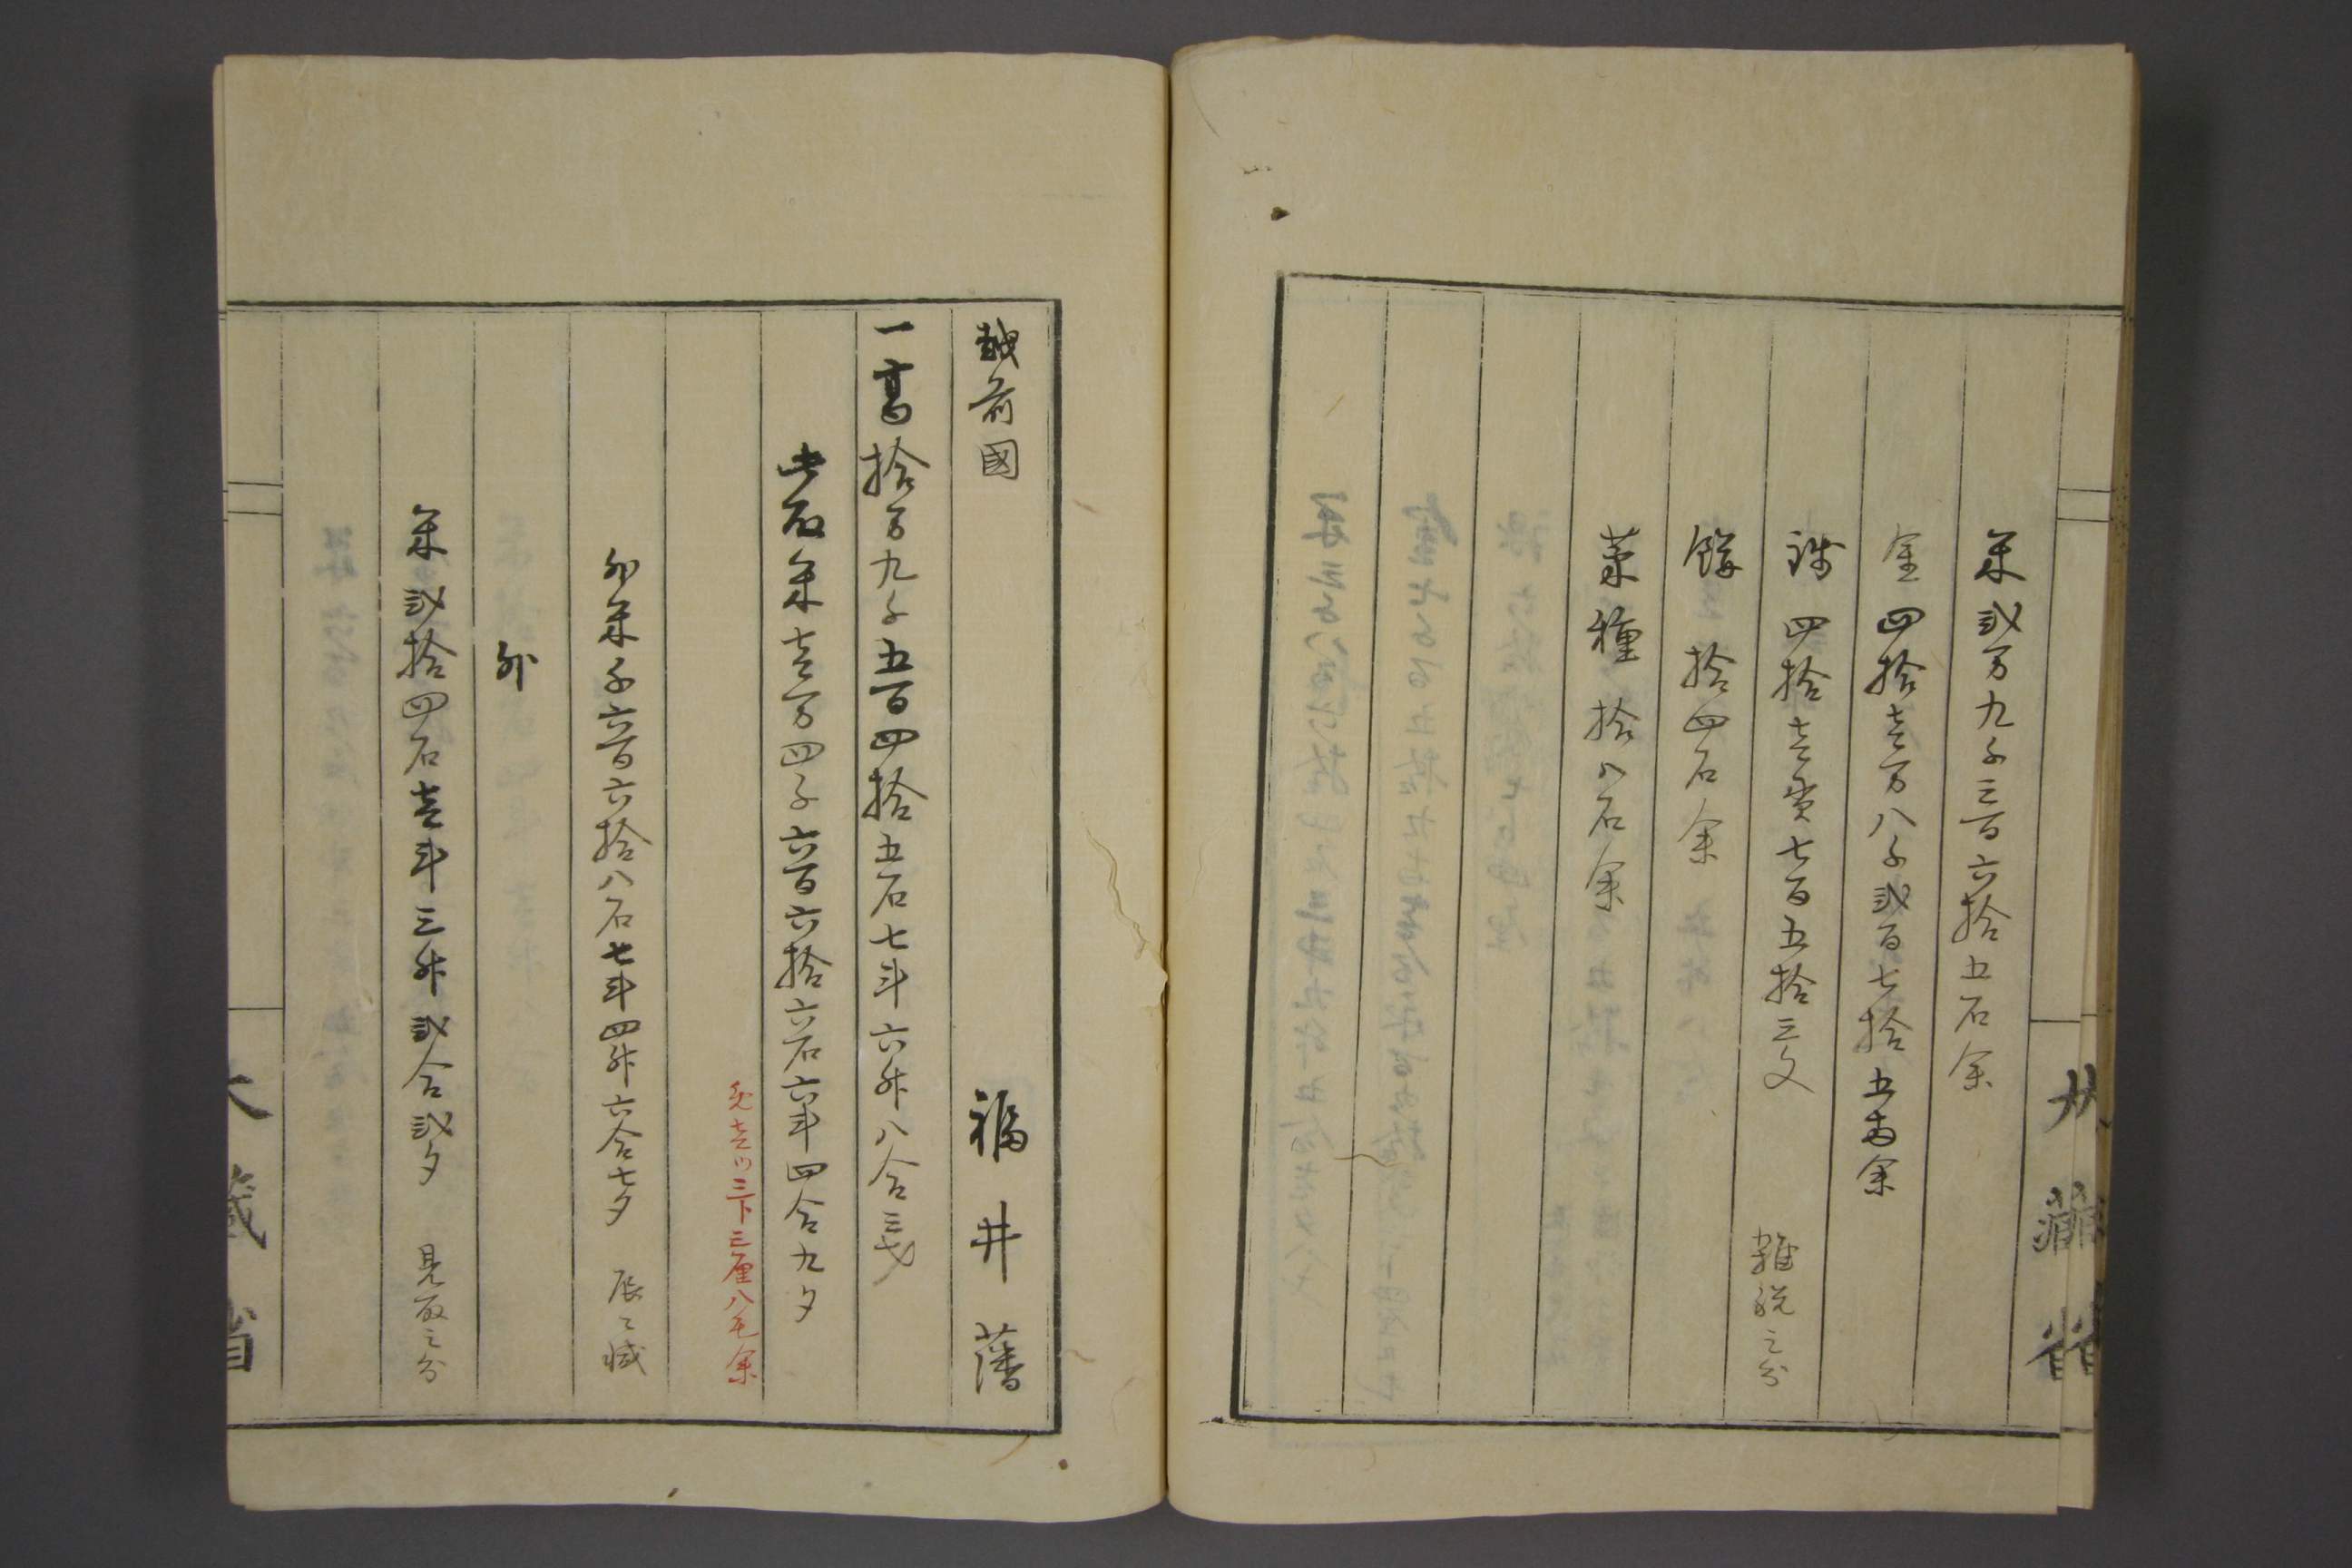 米弐万九千三百六拾五石余
金四拾壱万八千弐百七拾五両余
銭四拾壱貫七百五拾三文 雑税之分
餅拾四石余
菜種拾八石余
大藏省
越前國 福井藩
一高拾万九千五百四拾五石七斗六升八合三勺
此取米壱万四千六百六拾六石六斗四合九夕
免壱ツ三下三厘八毛余
外米千六百六拾八石七斗四升六合七夕 辰之減
外
米弐拾四石壱斗三升弐合弐夕 見取之分
大藏省